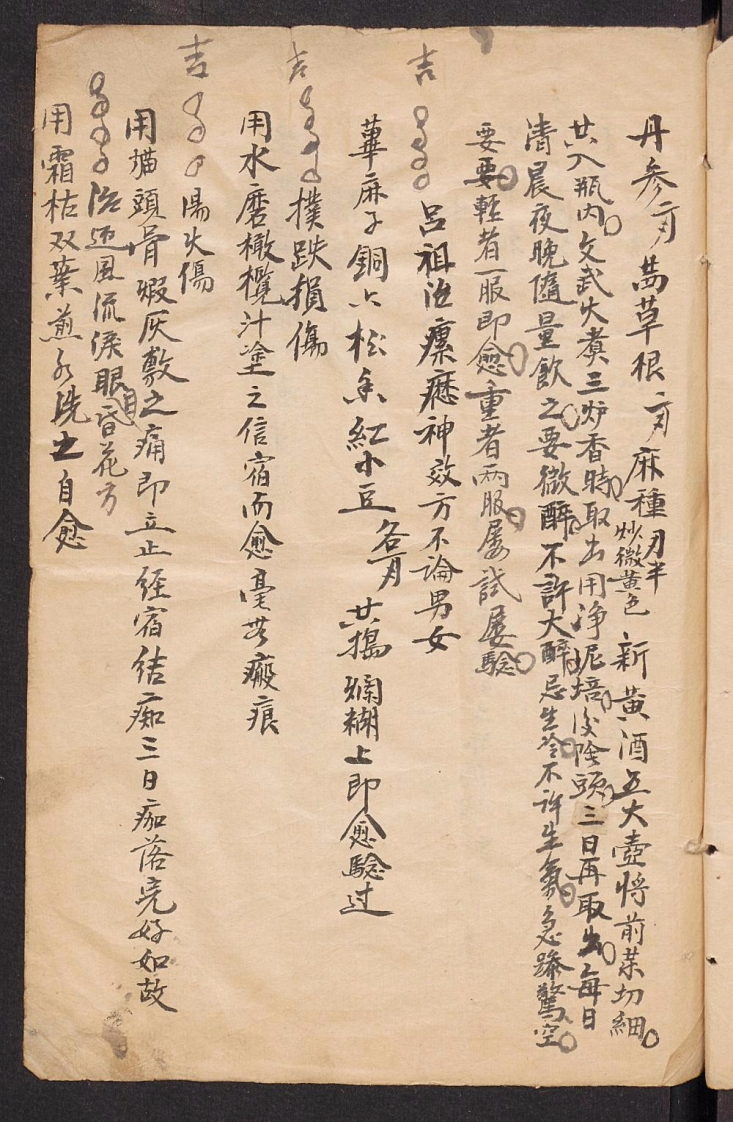 丹參 茜草根 麻種 炒微黃色 新黃酒五大壺將前菜切細
共入瓶內文武火煮三炉香時取出用净坭培 陰頭三日再取出每日
清晨夜晚隨量飲之要微醉不許大醉忌生冷不許生氣急躁驚空
要要輕者一服即愈重者兩服屡試屡驗
吉 呂祖治瘰癧神效方不論男女
萆麻子銅六松香紅小豆各 共搗爛糊上即愈驗过
吉 撲跌損傷
用水磨橄欖汁塗之信宿而愈毫無瘢痕
吉 湯火傷
用猫頭骨煅灰敷之痛即立止經宿结痂三日痂落完好如故
治迎風流淚眼目昏花方
用霜枯双葉煎水洗之自愈